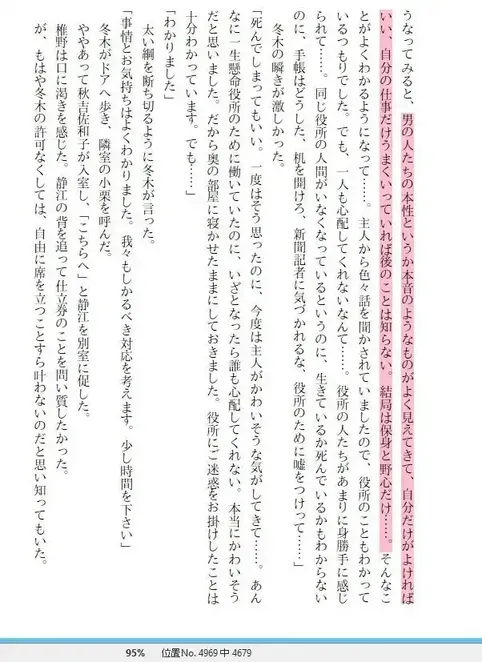 うなってみると、男の人たちの本性というか本音のようなものがよく見えてきて、自分だけがよければ
いい、自分の仕事だけうまくいっていれば後のことは知らない。結局は保身と野心だけ……。そんなこ
とがよくわかるようになって……。主人から色々話を聞かされていましたので、役所のこともわかって
いるつもりでした。でも、一人も心配してくれないなんて……。役所の人たちがあまりに身勝手に感じ
られて……。同じ役所の人間がいなくなっているというのに、生きているか死んでいるかもわからない
のに、手帳はどうした、机を開けろ、新聞記者に気づかれるな、役所のために嘘をつけって……」
冬木の瞬きが激しかった。
「死んでしまってもいい。一度はそう思ったのに、今度は主人がかわいそうな気がしてきて……。あん
なに一生懸命役所のために働いていたのに、いざとなったら誰も心配してくれない。本当にかわいそう
だと思いました。だから奥の部屋に寝かせたままにしておきました。役所にご迷惑をお掛けしたことは
十分わかっています。でも……」
「わかりました」
太い綱を断ち切るように冬木が言った。
「事情とお気持ちはよくわかりました。我々もしかるべき対応を考えます。少し時間を下さい」
冬木がドアへ歩き、隣室の小栗を呼んだ。
ややあって秋吉佐和子が入室し、「こちらへ」と静江を別室に促した。
椎野は口に渇きを感じた。静江の背を追って仕立券のことを問い質したかった。
が、もはや冬木の許可なくしては、自由に席を立つことすら叶わないのだと思い知ってもいた。
95% 位置No. 4969中 4679